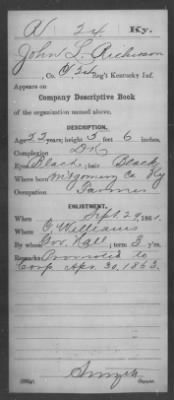 A 24 Ky.
John S. Richison
, Co. G, 24 Reg't Kentucky Inf.
Appears on
Company Descriptive Book
of the organization named above.
DESCRIPTION.
Age 22 years; height 5 feet 6 inches.
Complexion Dark
Eyes Black; hair Black
Where born Montgomery Co Ky
Occupation Farmer
ENLISTMENT.
When Sept. 29, 1861.
Where O. Williams
By whom Gov. Hall; term 3 y'rs.
Remarks: Promoted to
Corp Apr. 30, 1863.
Smyth
Copyist.